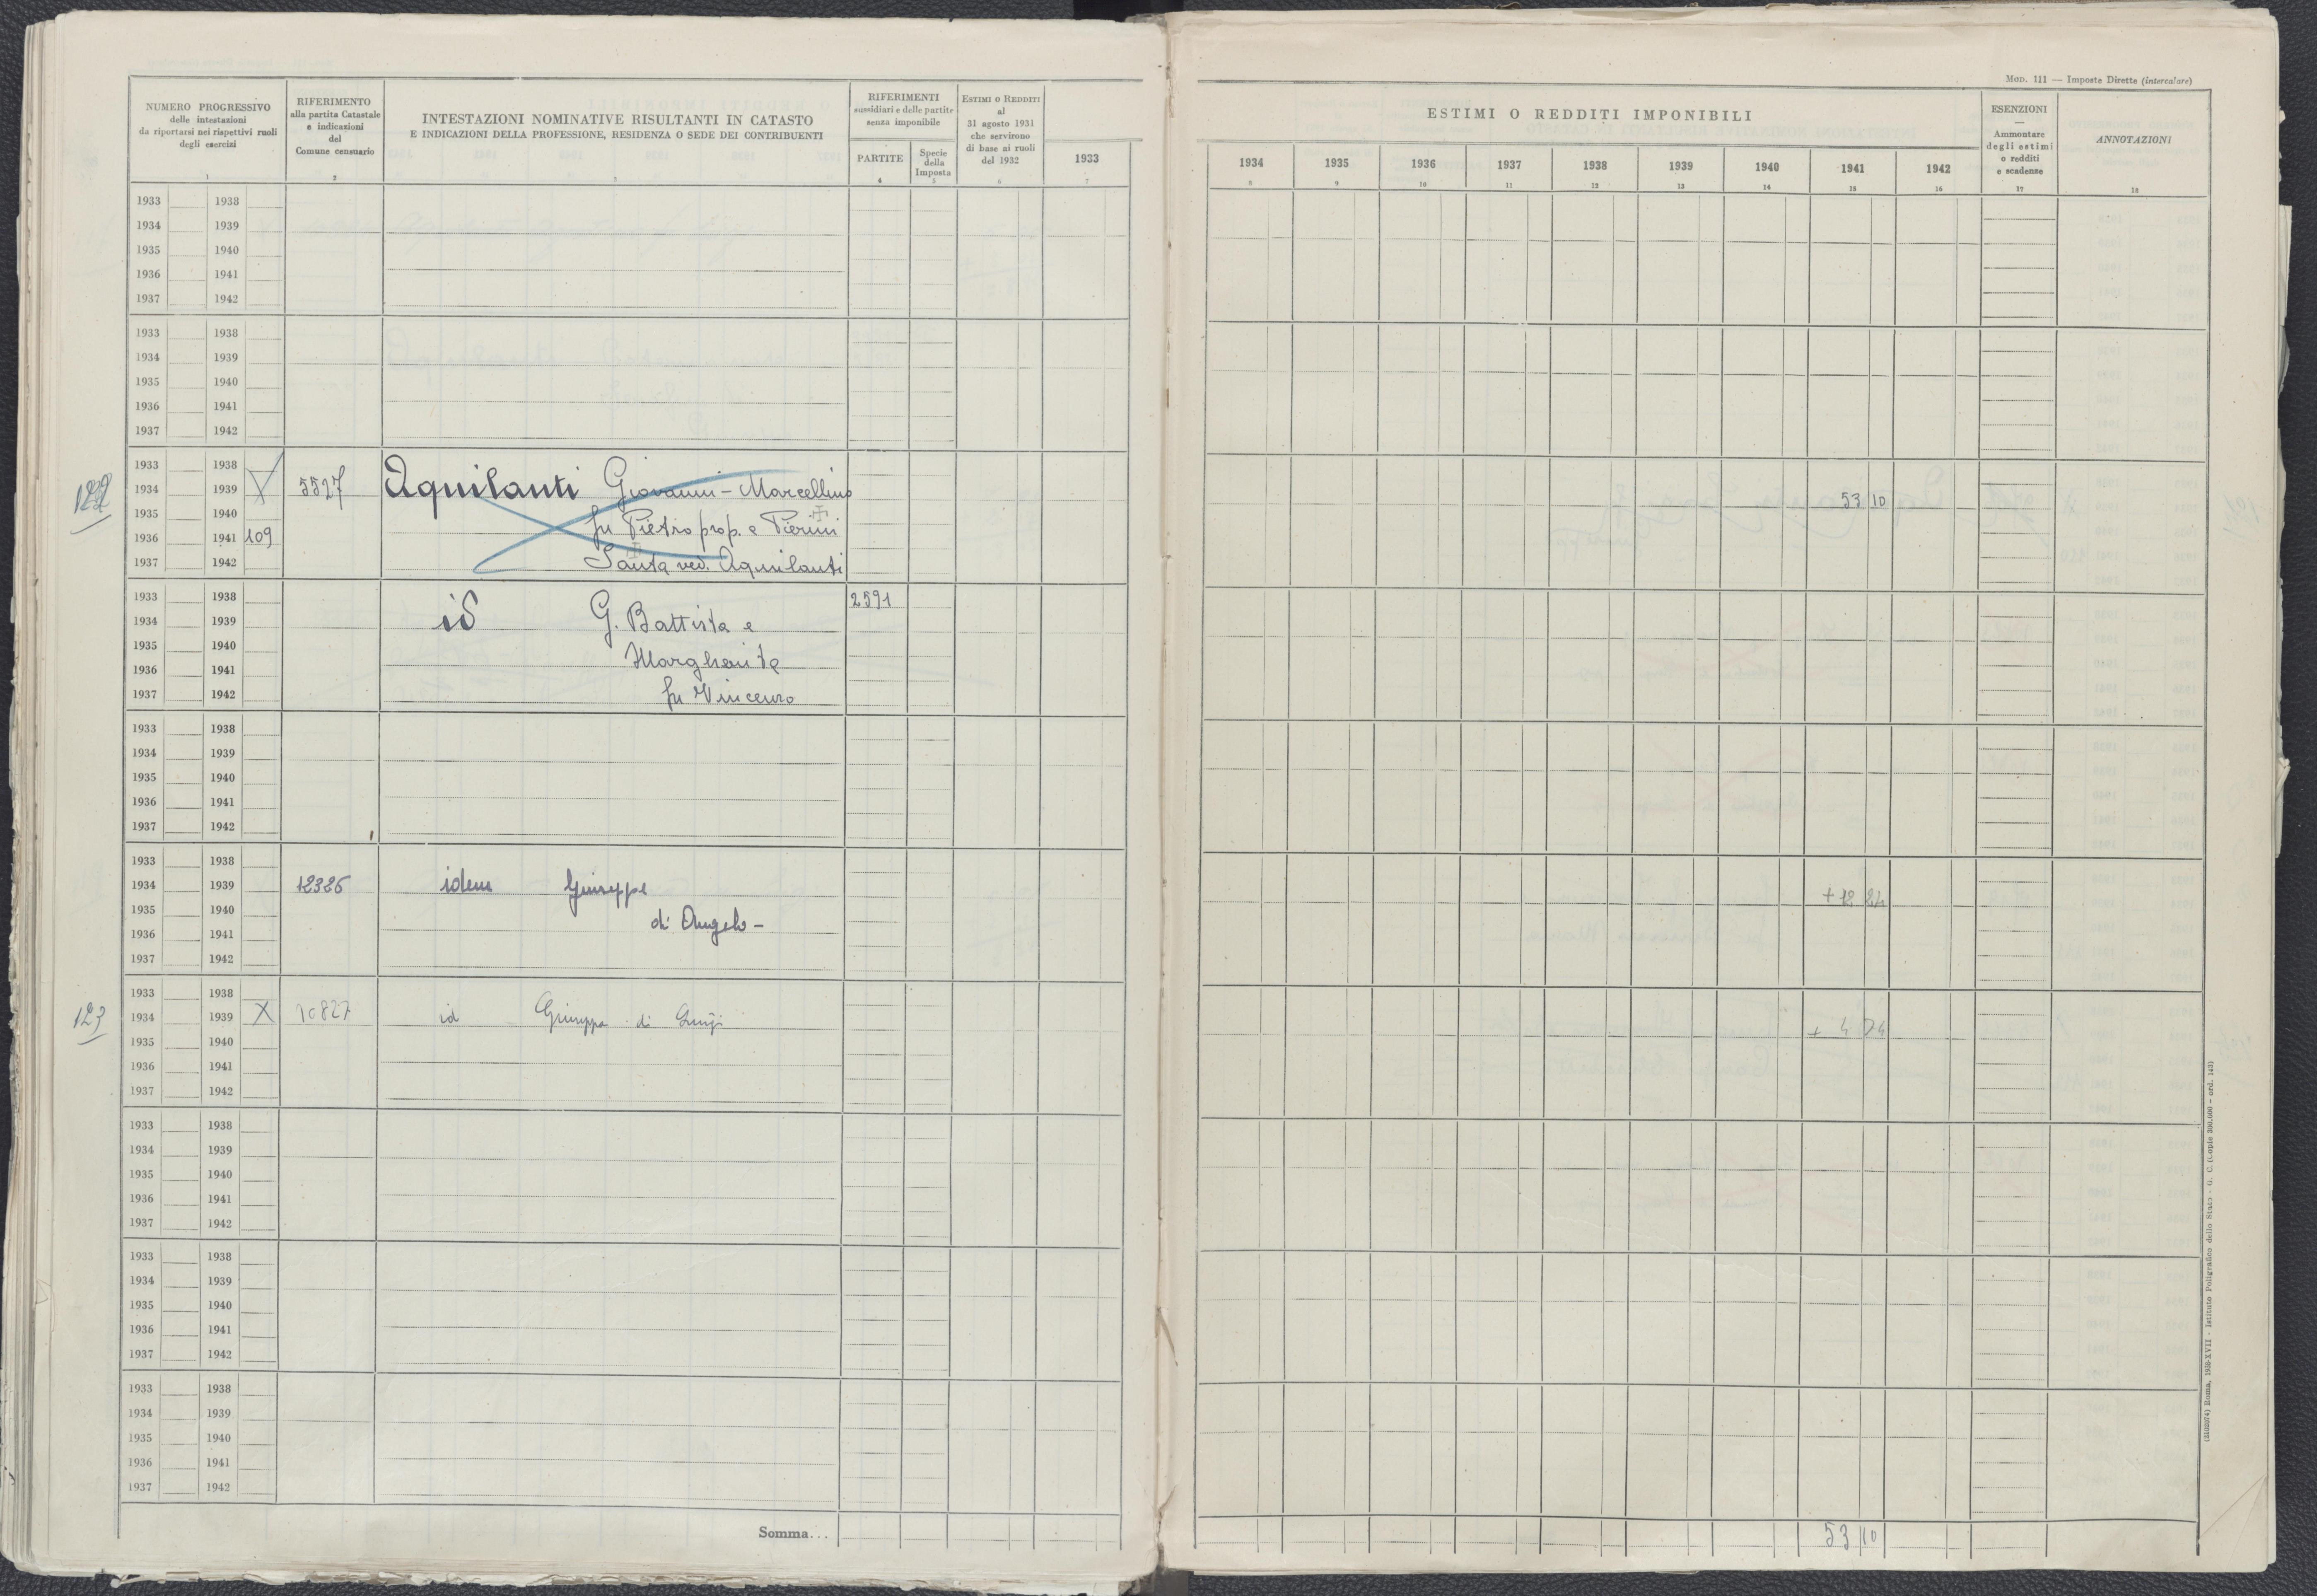 MOD. 111 — Imposte Dirette (intercalare)
NUMERO PROGRESSIVO
delle intestazioni
da riportarsi nei rispettivi ruoli
degli esercizi
1
RIFERIMENTO
alla partita Catastale
e indicazioni
del
Comune censuario
2
INTESTAZIONI NOMINATIVE RISULTANTI IN CATASTO
E INDICAZIONI DELLA PROFESSIONE, RESIDENZA O SEDE DEI CONTRIBUENTI
3
RIFERIMENTI
sussidiari e delle partite
senza imponibile
PARTITE
4
Specie
della
Imposta
5
ESTIMI O REDDITI
al
31 agosto 1931
che servirono
di base ai ruoli
del 1932
6
1933
7
ESTIMI O REDDITI IMPONIBILI
1934 1935 1936 1937 1938 1939 1940 1941 1942
8 9 10 11 12 13 14 15 16
ESENZIONI
—
Ammontare
degli estimi
o redditi
e scadenze
17
ANNOTAZIONI
18
1933 1938
1934 1939
1935 1940
1936 1941
1937 1942
1933 1938
1934 1939
1935 1940
1936 1941
1937 1942
1933 1938
122 1934 1939 5527 Aquilanti Giovanni-Marcellino 53 10
1935 1940 fu Pietro prop. e Pierini
1936 1941 109
1937 1942 Santa ved. Aquilanti
1933 1938 2591
1934 1939 id G. Battista e
1935 1940
1936 1941 Margherita
1937 1942 fu Vincenzo
1933 1938
1934 1939
1935 1940
1936 1941
1937 1942
1933 1938
1934 1939 12326 idem Giuseppe
1935 1940 di Angelo -
1936 1941
1937 1942
1933 1938
123 1934 1939 X 10827 id Giuseppa di Luigi + 4 74
1935 1940
1936 1941
1937 1942
1933 1938
1934 1939
1935 1940
1936 1941
1937 1942
1933 1938
1934 1939
1935 1940
1936 1941
1937 1942
1933 1938
1934 1939
1935 1940
1936 1941
1937 1942
Somma... 53 10
Roma, 1938-XVII - Istituto Poligrafico dello Stato - G. C.